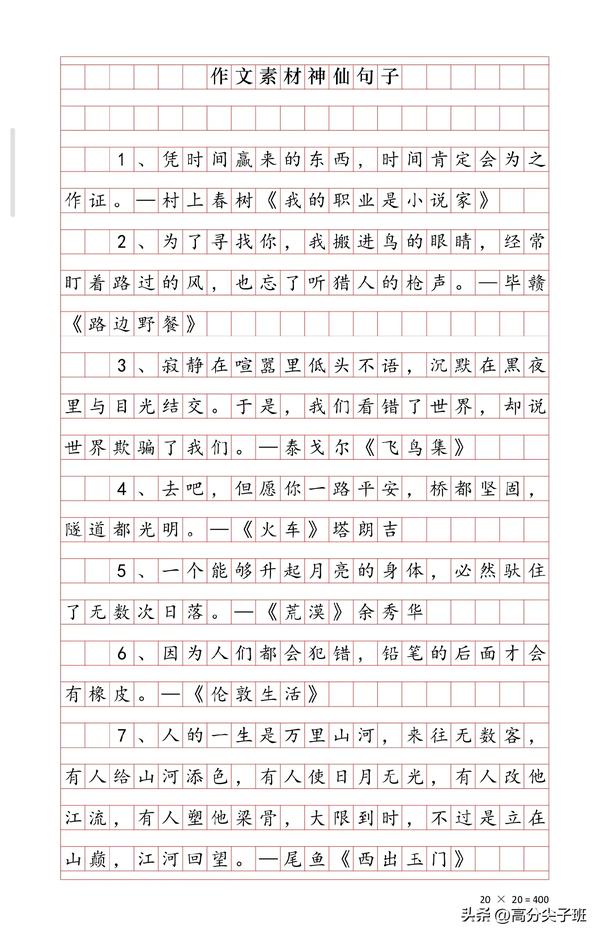 作文素材神仙句子
1、凭时间赢来的东西，时间肯定会为之
作证。—村上春树《我的职业是小说家》
2、为了寻找你，我搬进鸟的眼睛，经常
盯着路过的风，也忘了听猎人的枪声。—毕赣
《路边野餐》
3、寂静在喧嚣里低头不语，沉默在黑夜
里与目光结交。于是，我们看错了世界，却说
世界欺骗了我们。—泰戈尔《飞鸟集》
4、去吧，但愿你一路平安，桥都坚固，
隧道都光明。—《火车》塔朗吉
5、一个能够升起月亮的身体，必然驮住
了无数次日落。—《荒漠》余秀华
6、因为人们都会犯错，铅笔的后面才会
有橡皮。—《伦敦生活》
7、人的一生是万里山河，来往无数客，
有人给山河添色，有人使日月无光，有人改他
江流，有人塑他梁骨，大限到时，不过是立在
山巅，江河回望。—尾鱼《西出玉门》
20 × 20 = 400
头条 @高分尖子班